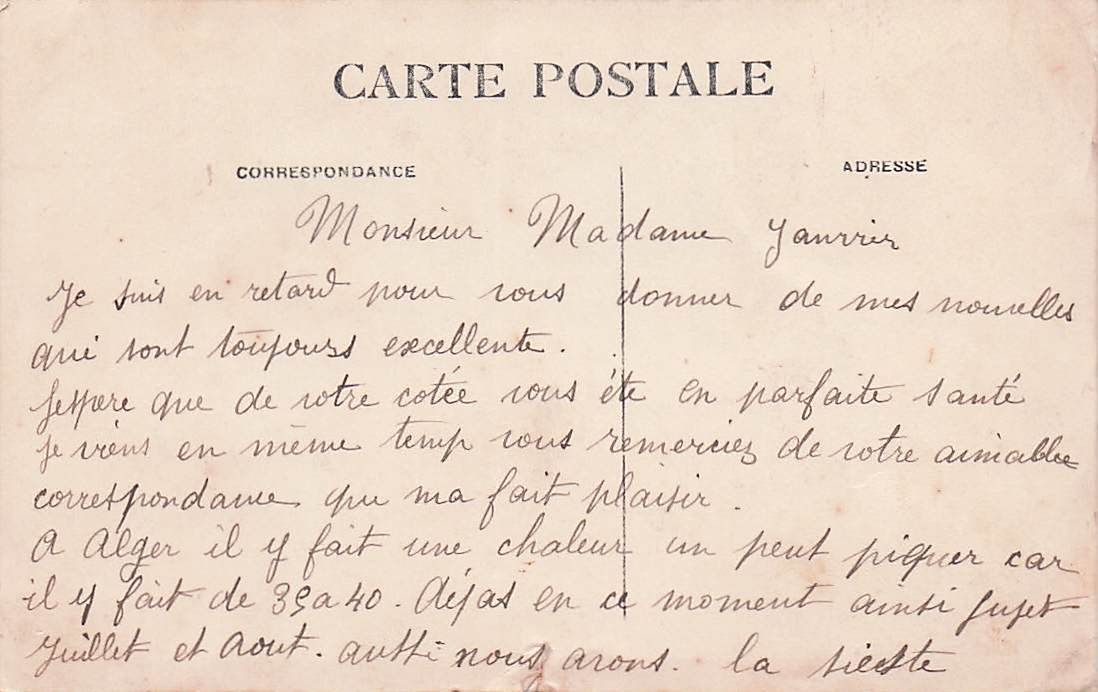 CARTE POSTALE
CORRESPONDANCE
ADRESSE
Monsieur Madame Janvrier
Je suis en retard pour vous donner de mes nouvelles
qui sont toujours excellente.
Jespere que de votre cotée vous éte en parfaite santé
Je viens en même temp vous remerciez de votre aimable
correspondance qui ma fait plaisir.
A Alger il y fait une chaleur un peut piquer car
il y fait de 35 a 40. déjas en ce moment ainsi
Juillet et Aout. aussi nous avons. la sieste